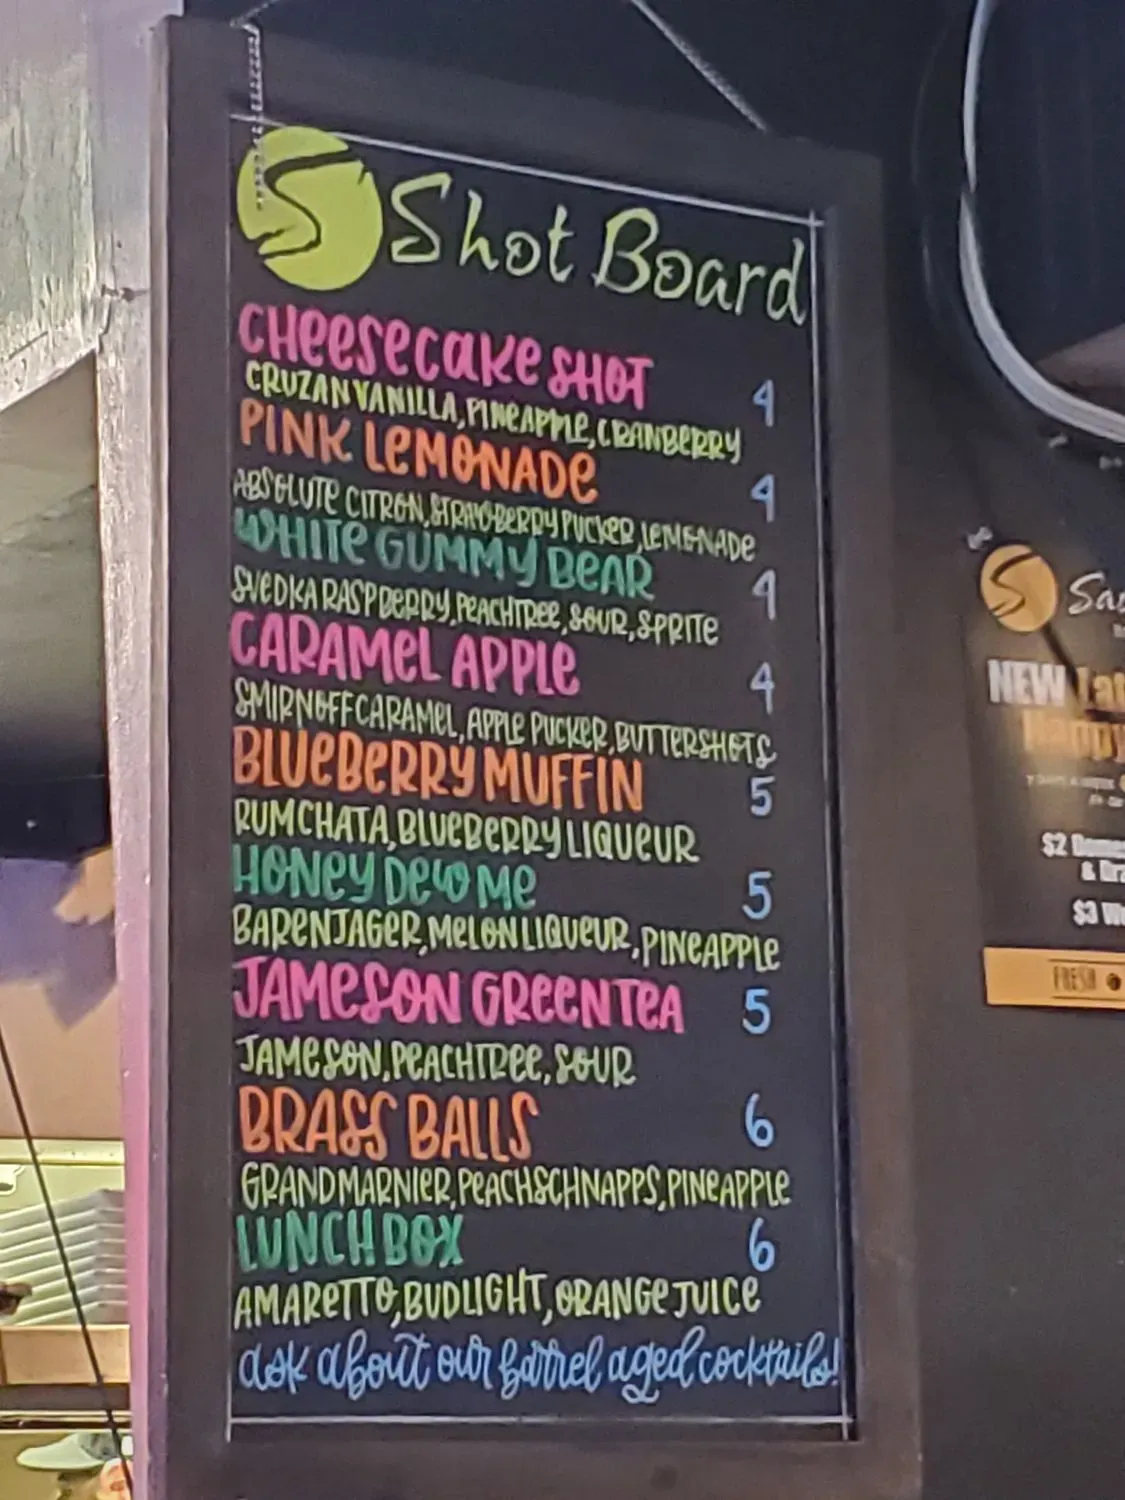 S Shot Board
CHeeseCaKe SHOT 4
CRUZAN VANILLA, PINEAPPLE, CRANBERRY
PINK LeMONADe 4
ABSOLUTE CITRON, STRAWBERRY PUCKER, LEMONADe
WHITe GUMMY BeAR 4
SVeDKA RASPBERRY, PEACHTRee, SOUR, SPRITe
CARAMeL APPLe 4
SMIRNOFF CARAMeL, APPLe PUCKER, BUTTERSHOTS
BLUeBeRRY MUFFIN 5
RUMCHATA, BLUeBeRRY LIQUEUR
HONeY DeW Me 5
BARENJAGER, MeLON LIQUEUR, PINEAPPLe
JAMeSON GReeN TeA 5
JAMeSON, PeACHTRee, SOUR
BRASS BALLS 6
GRAND MARNIeR, PeACH SCHNAPPS, PINeAPPLe
LUNCH BOX 6
AMAReTTO, BUDLIGHT, ORANGe JUICe
ask about our barrel aged cocktails!
S
NEW
$2
&
$3
FRESH